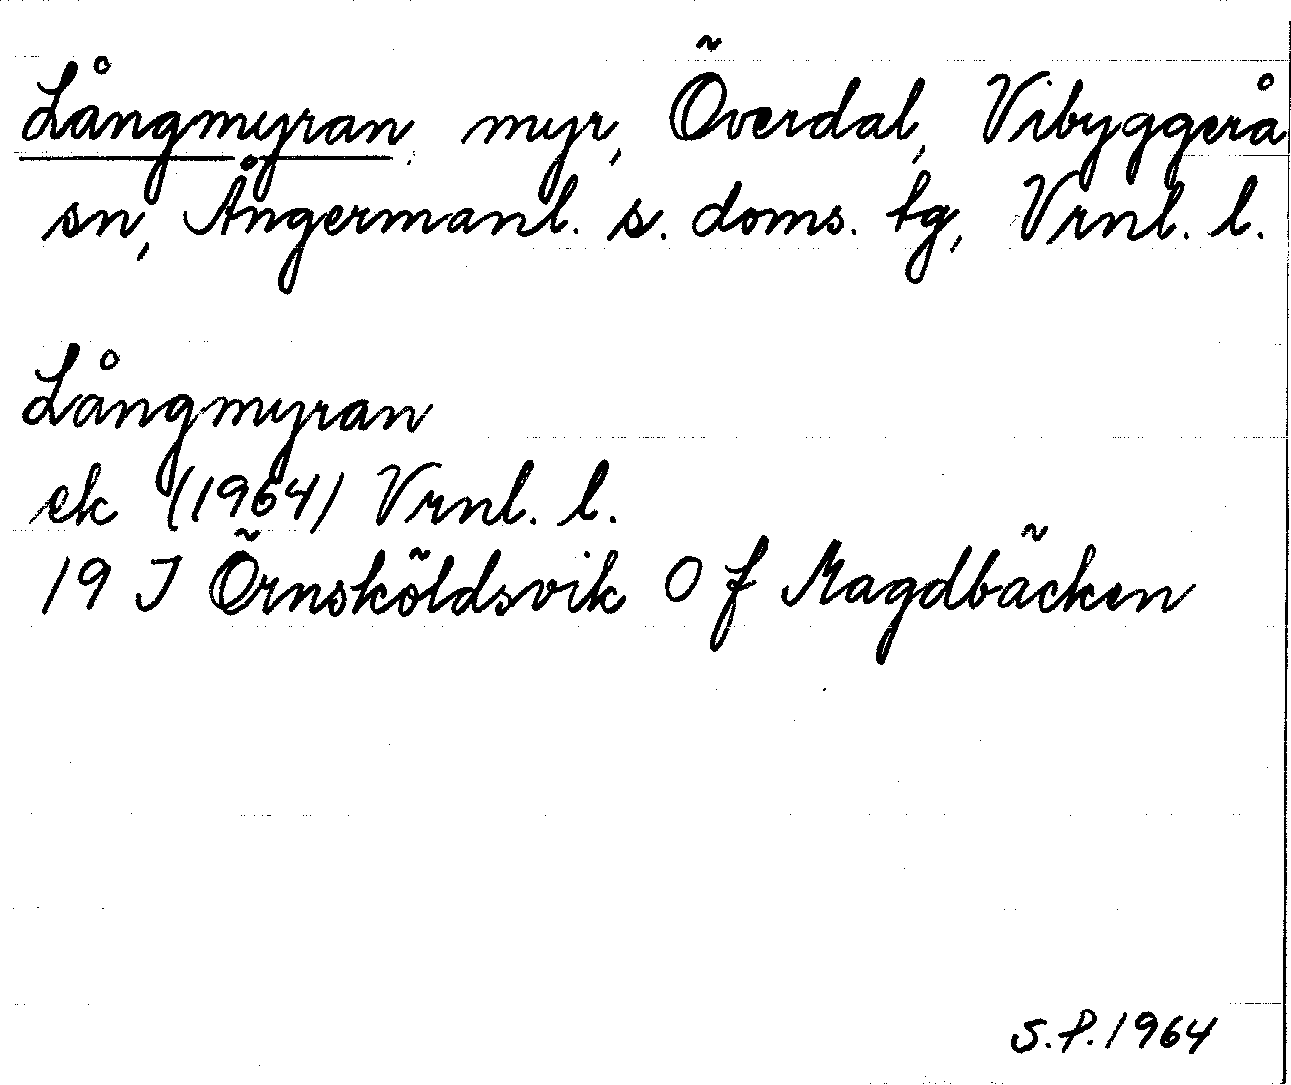 Långmyran, myr, Överdal, Vibyggerå
sn, Ångermanl. s. doms. tg, Vrnl. l.
Långmyran
ek (1964) Vrnl. l.
19 I Örnsköldsvik O f Magdbäcken
S.P. 1964